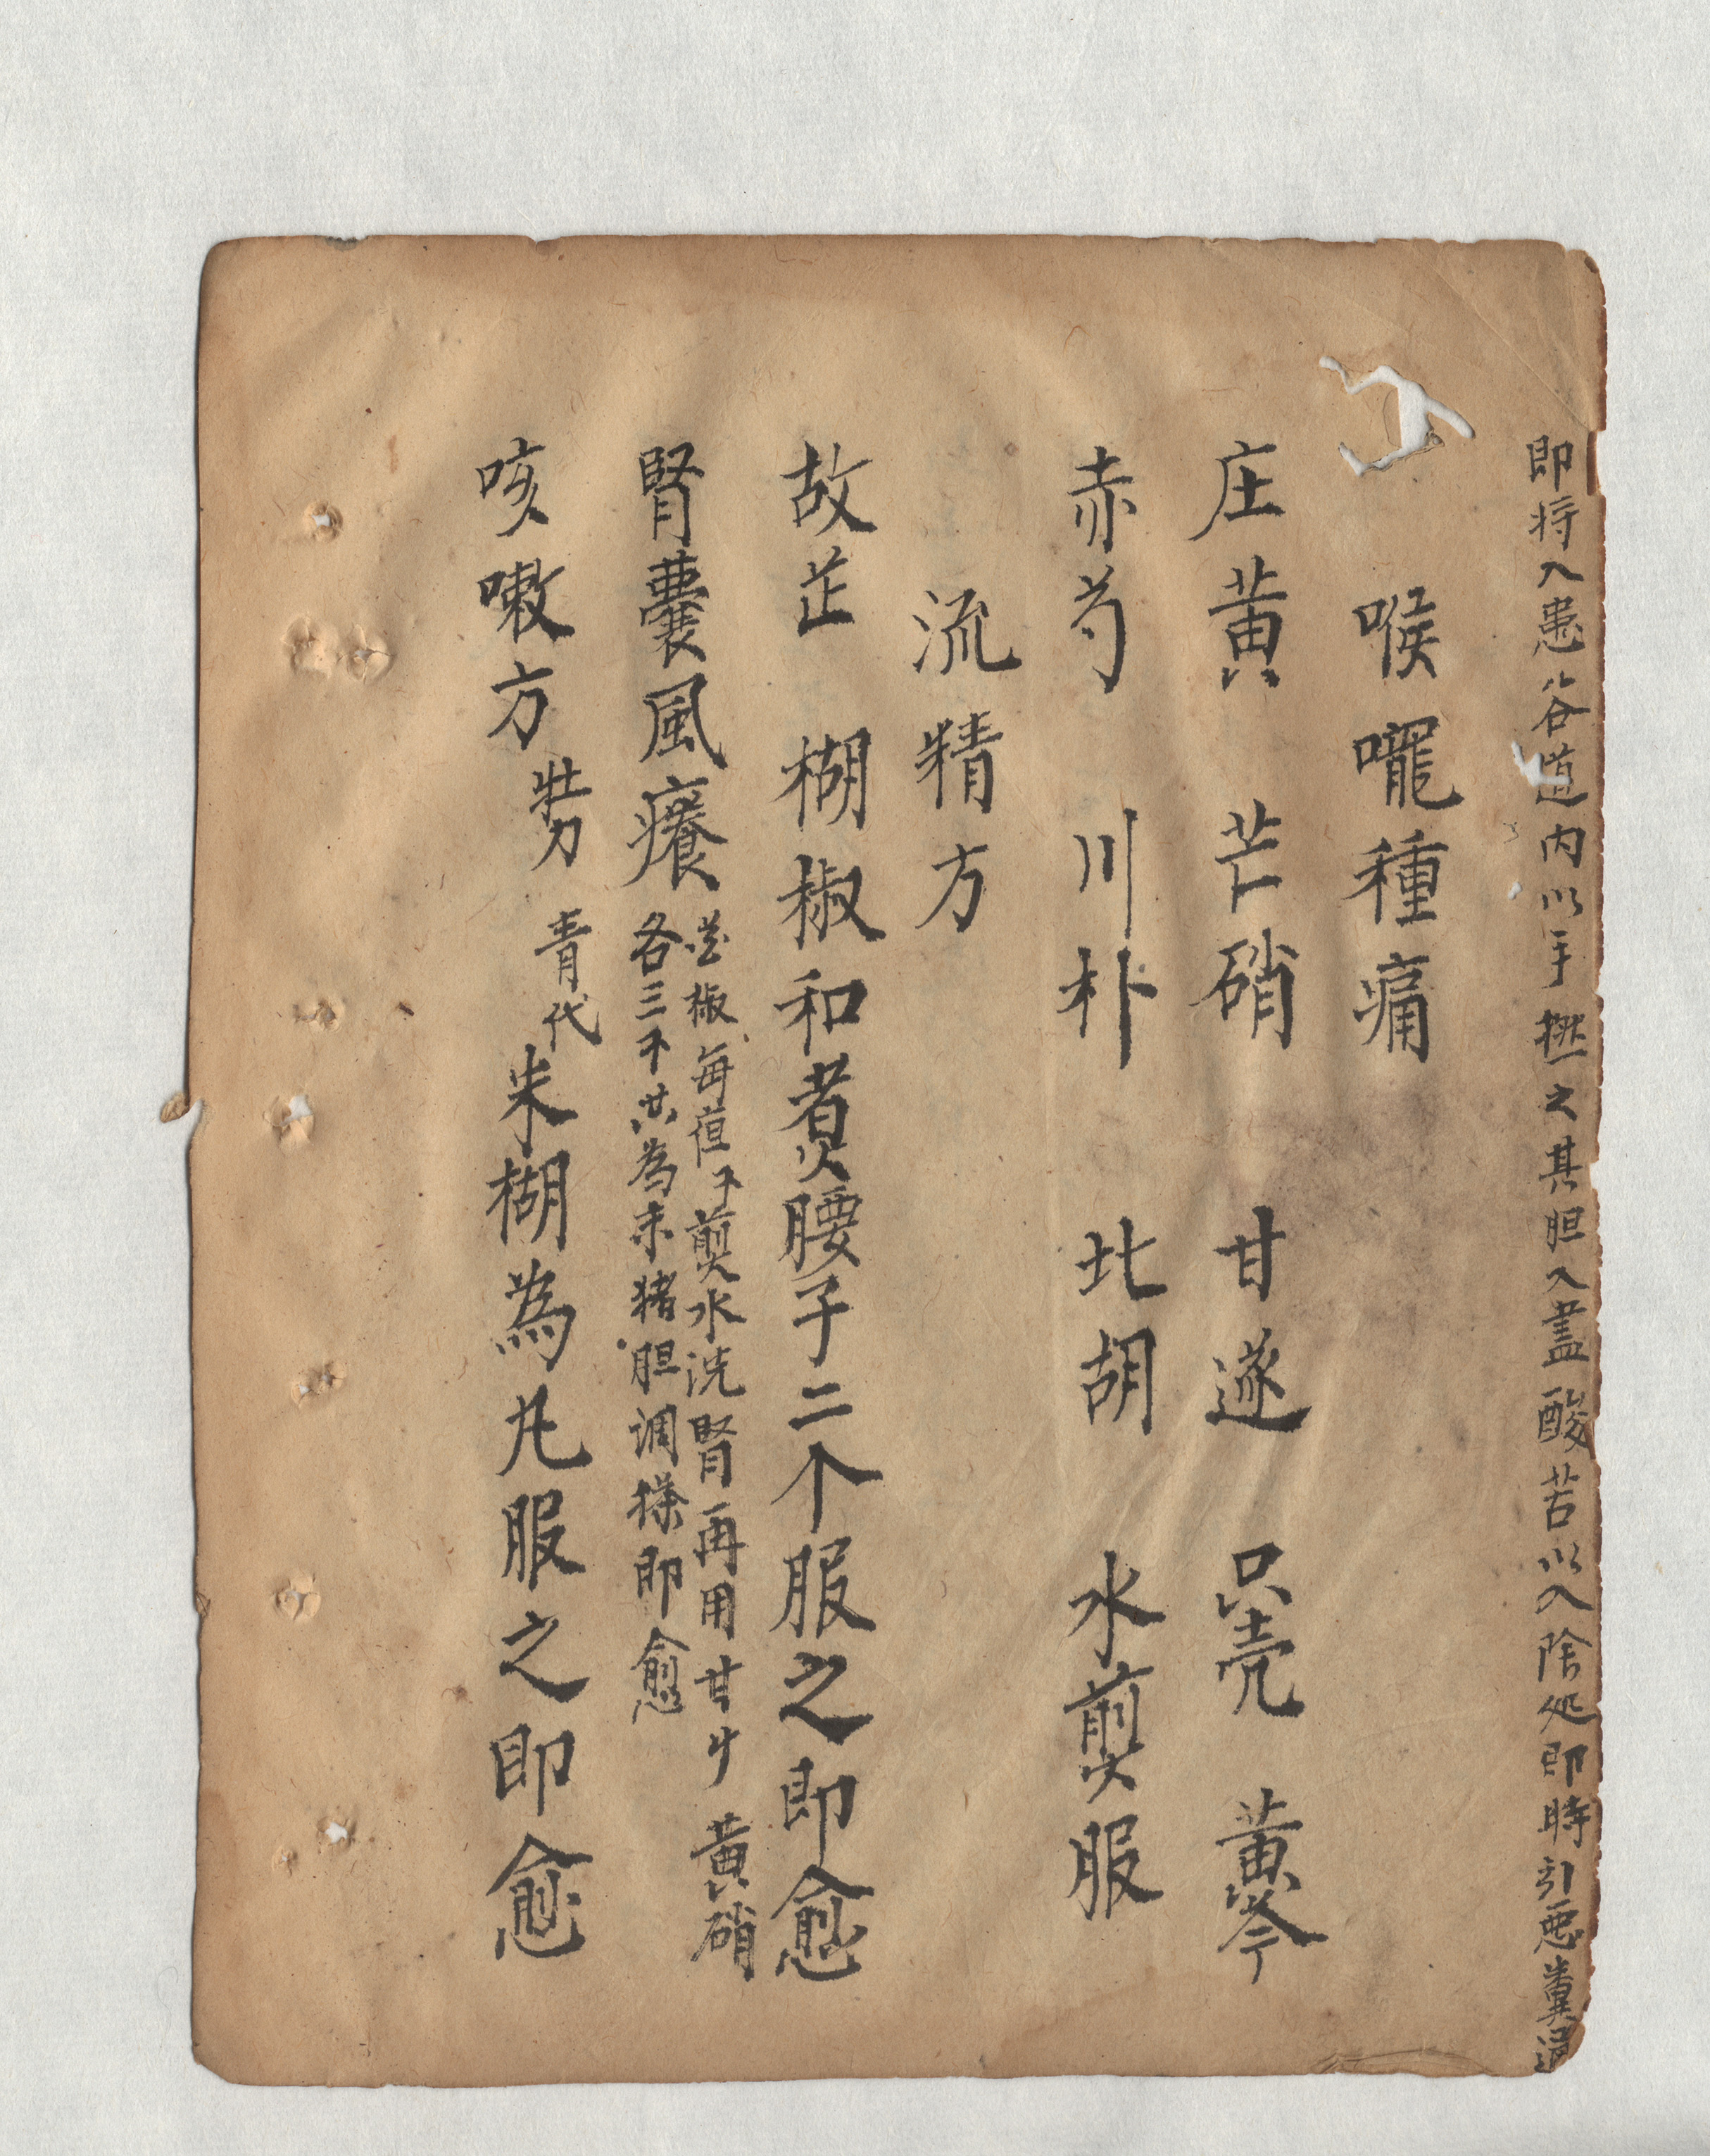 即将入患谷道内以手撚之其胆入盡酸苦以入陰処即時引悪糞過
喉嚨種痛
庄黄 芒硝 甘遂 只壳 黄芩
赤芍 川朴 北胡 水煎服
流精方
故芷 楜椒和煮腰子二个服之即愈
腎囊風癢
椒每 煎水洗腎再用甘 黄硝
各三 共為末猪胆调搽即愈
咳嗽方 青代 米楜為凡服之即愈